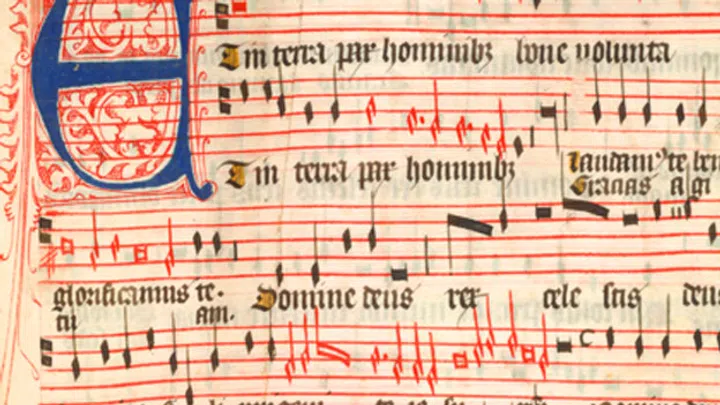 E
Et in terra pax hominibꝫ bone volunta
Et in terra pax hominibꝫ laudamꝰ te ben
Gracias a gi
glorificamus te. Domine deus rex cele stis deus
tu am.